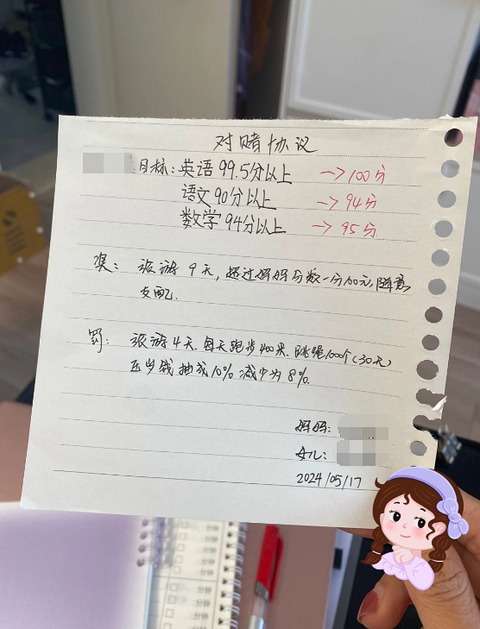 对赌协议
目标：英语 99.5分以上 → 100分
语文 90分以上 → 94分
数学 94分以上 → 95分
奖： 旅游 9天，超过妈妈分数一分100元，随意
支配。
罚： 旅游4天.每天跑步400米.跳绳1000个（30天）
压岁钱抽成10% 减少为8%.
妈妈：
女儿：
2024/05/17